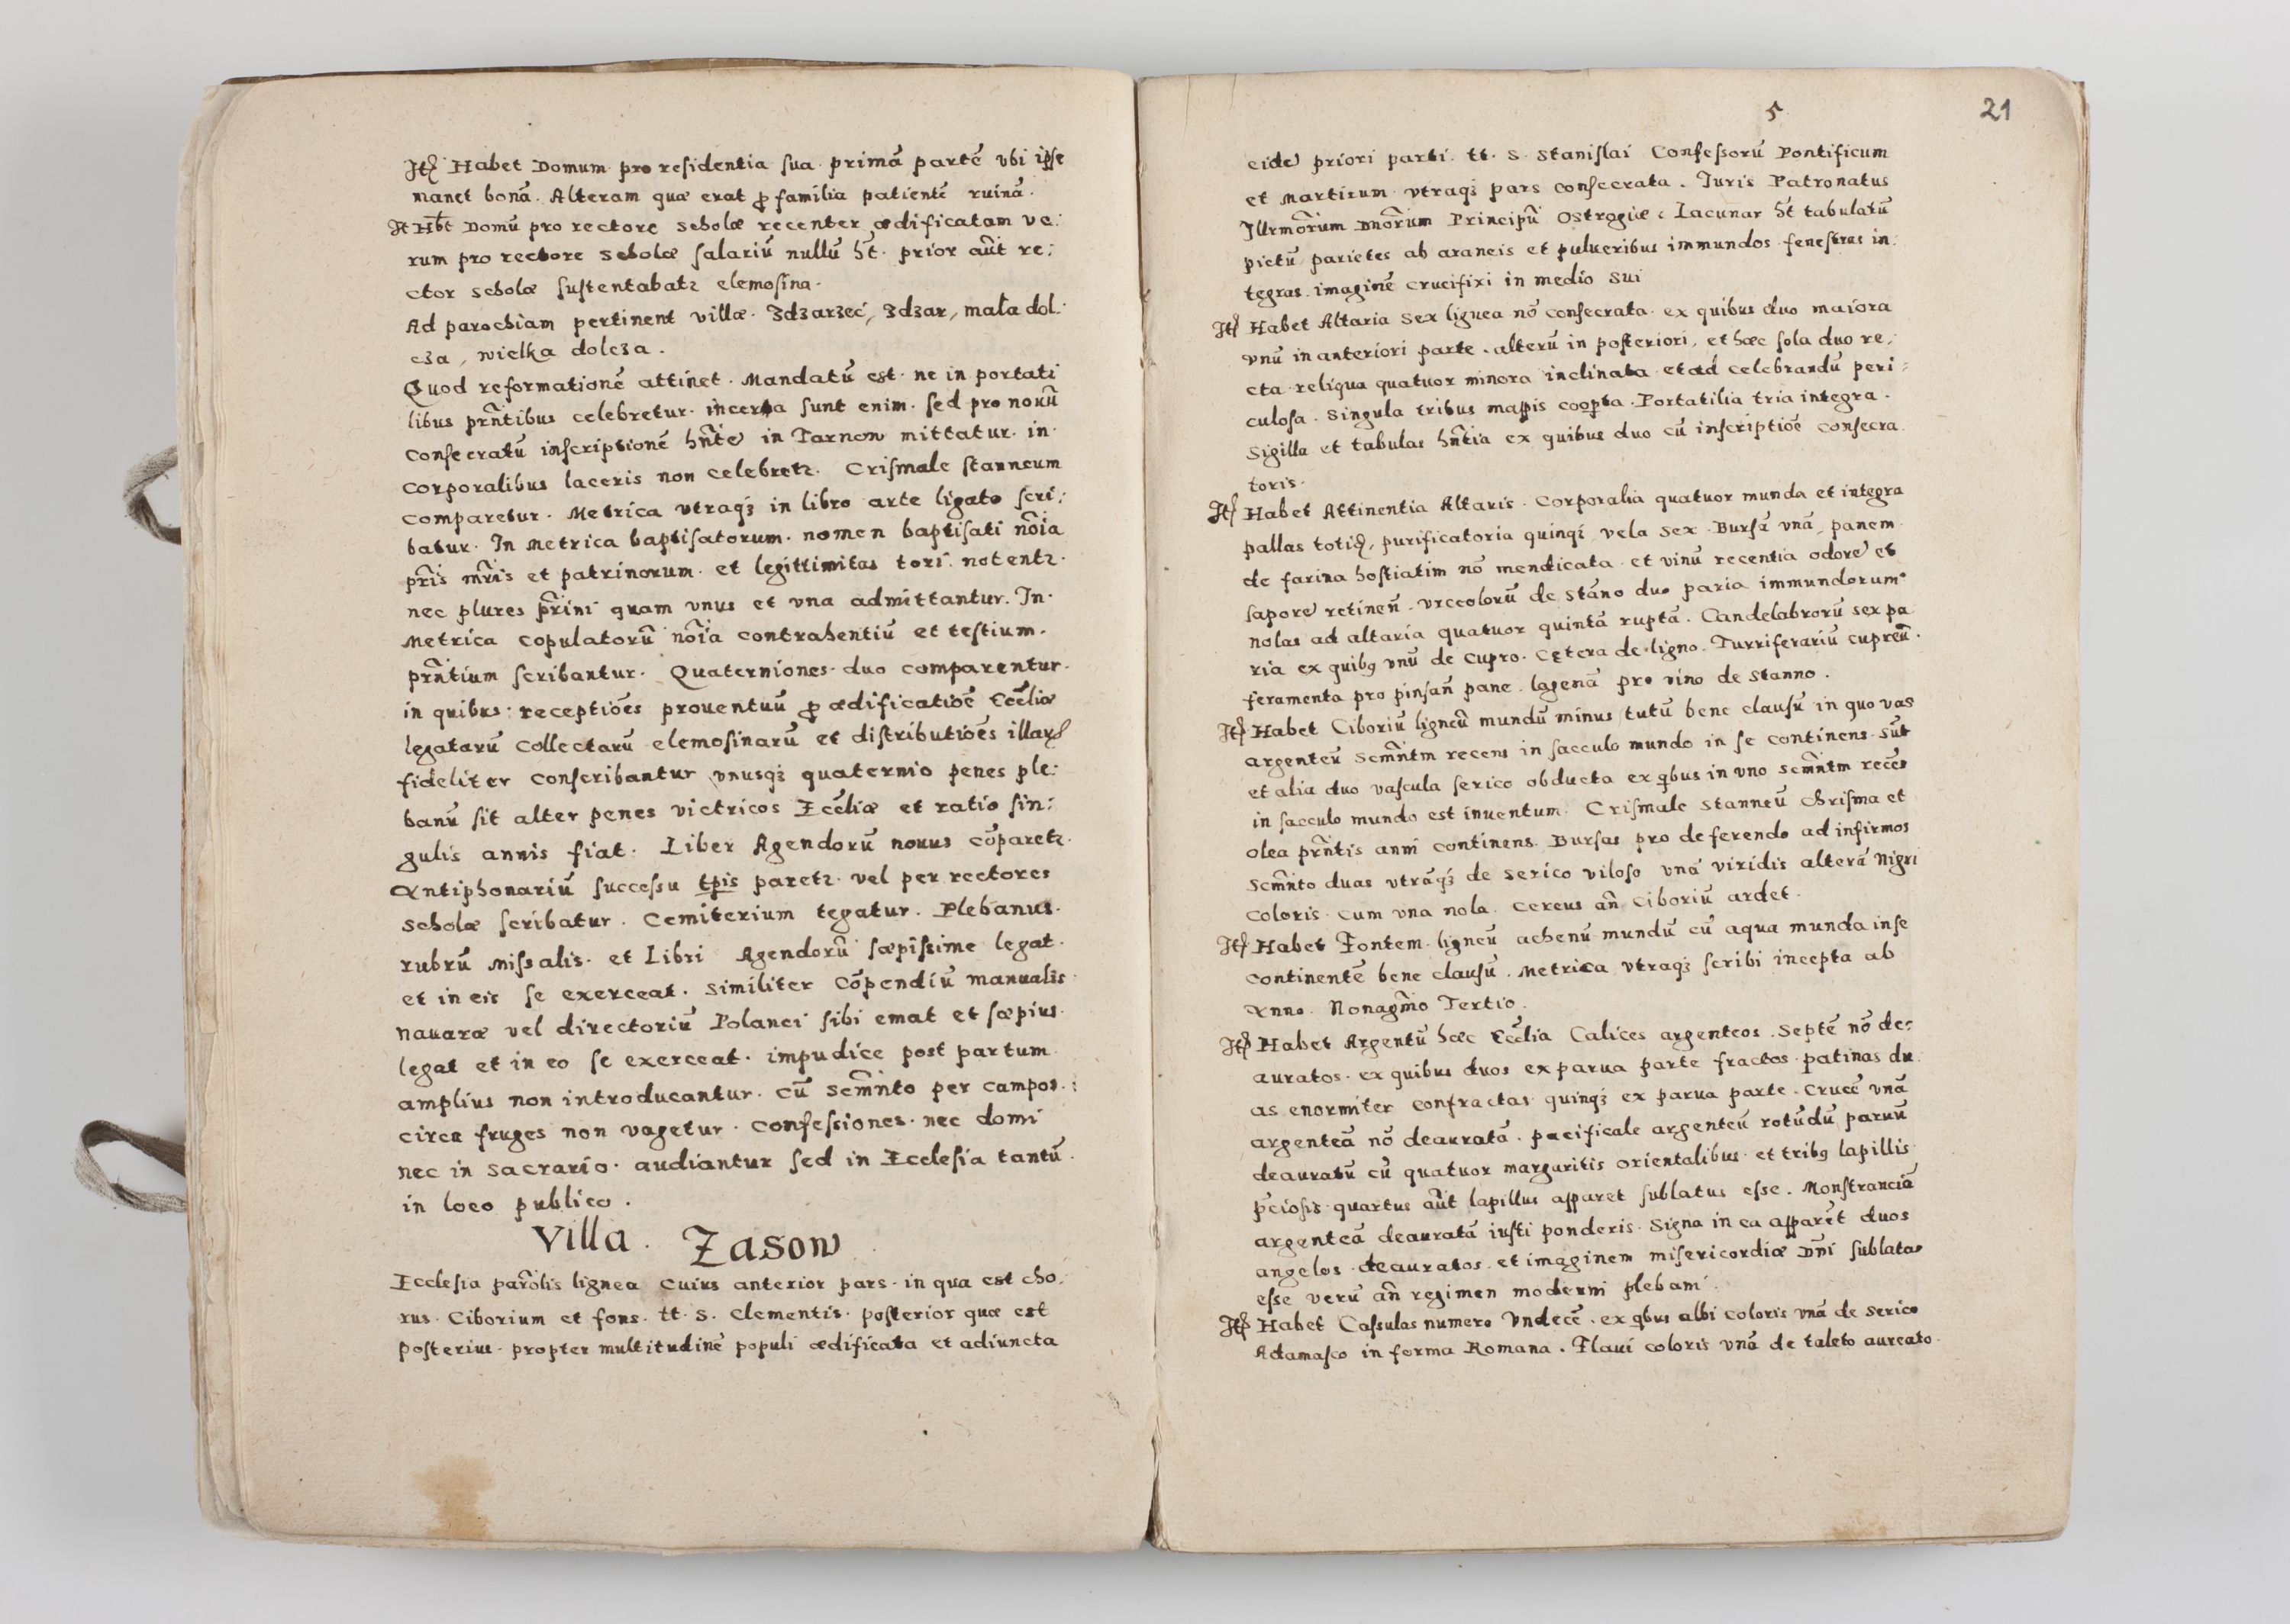 Itē Habet Domum pro residentia sua primā partē vbi ipse
manet bonā. Alteram quæ erat ꝓ familia patientē ruinā.
It Hbt Domū pro rectore scholæ recenter ædificatam ve:
rum pro rectore scholæ salariū nullū ht̄. prior aūt re:
ctor scholæ sustentabatꝛ elemosina.
Ad parochiam pertinent villæ. Zdzarzec, Zdzar, mała dol:
cza, wielka dolcza.
Quod reformationē attinet. Mandatū est ne in portati
libus prñtibus celebretur. incerta sunt enim. sed pro nouū
consecratū inscriptionē hñte in Tarnow mittatur. in
corporalibus laceris non celebretꝛ. Crismale stanneum
comparetur. Metrica vtraqꝫ in libro arte ligato scri:
batur. In Metrica baptisatorum. nomen baptisati nōia
pr̄is mr̄is et patrinorum. et legittimitas tori notentꝛ.
nec plures pr̄ini quam vnus et vna admittantur. In
Metrica copulatorū nōia contrahentiū et testium.
prñtium scribantur. Quaterniones duo comparentur.
in quibus: receptiōes prouentuū ꝓ ædificatiōe Eccl̄iæ
legatarū collectarū elemosinarū et distributiōes illarꝝ
fideliter conscribantur vnusqꝫ quaternio penes ple:
banū sit alter penes victricos Eccl̄iæ et ratio sin:
gulis annis fiat. Liber Agendorū nouus cōparetꝛ.
Antiphonariū successu tp̄is paretꝛ. vel per rectores
scholæ scribatur. Cemiterium tegatur. Plebanus.
rubrū Missalis. et Libri Agendorū sæpissime legat.
et in eis se exerceat. similiter cōpendiū manualis
nauaræ vel directoriū Polanci sibi emat et sæpius.
legat et in eo se exerceat. impudice post partum
amplius non introducantur. cū Scm̄nto per campos.:
circa fruges non vagetur. confessiones. nec domi
nec in sacrario. audiantur sed in Ecclesia tantū.
in loco publico.
Villa. Zasow
Ecclesia parōlis lignea cuius anterior pars. in qua est cho:
rus. Ciborium et fons. tt. S. Clementis. posterior quæ est
posterius. propter multitudinē populi ædificata et adiuncta
5 21
eidē priori parti. tt. S. Stanislai Confessorū Pontificum
et Martirum vtraqꝫ pars consecrata. Iuris Patronatus
Illrmōrum Dnōrum Principū Ostrogiæ. Lacunar ht̄ tabulatū
pictū parietes ab araneis et pulueribus immundos fenestras in:
tegras. imaginē crucifixi in medio sui
Itē Habet Altaria Sex lignea nō consecrata. ex quibus duo maiora
vnū in anteriori parte. alterū in posteriori, et hæc sola duo re:
cta reliqua quatuor minora inclinata et ad celebrandū peri:
culosa. Singula tribus mappis coopta. Portatilia tria integra.
Sigilla et tabulas hñtia ex quibus duo cū inscriptiōe consecra
toris.
Itē Habet Attinentia Altaris. Corporalia quatuor munda et integra
pallas totiđ, purificatoria quinqꝫ, vela sex. Bursā vnā, panem
de farina hostiatim nō mendicata. et vinū recentia odorē et
saporē retineñ. vrceolorū de stāno duo paria immundorum.
nolas ad altaria quatuor quintā ruptā. Candelabrorū sex pa
ria ex quibꝰ vnū de cupro. cętera de ligno. Turriferariū cupreū.
feramenta pro pinsañ pane. lagenā pro vino de stanno.
Itē Habet Ciboriū ligneū mundū minus tutū bene clausū in quo vas
argenteū Scm̄ntm recens in sacculo mundo in se continens. sūt
et alia duo vascula serico obducta ex qbus in vno Scm̄ntm recēs
in sacculo mundo est inuentum. Crismale Stanneū Chrisma et
olea prñtis anni continens. Bursas pro deferendo ad infirmos
Scm̄nto duas vtrāqꝫ de serico viloso vnā viridis alterā nigri
coloris. cum vna nola. Cereus añ Ciboriū ardet.
Itē Habet Fontem ligneū ahenū mundū cū aqua munda in se
continentē bene clausū. Metrica vtraqꝫ scribi incepta ab
Anno. Nonagm̄o Tertio.
Itē Habet Argentū hæc Eccl̄ia Calices argenteos. Septē nō de:
auratos. ex quibus duos ex parua parte fractos. patinas du
as enormiter confractas quinqꝫ ex parua parte. crucē vnā
argenteā nō deauratā. pacificale argenteū rotūdū paruū
deauratū cū quatuor margaritis orientalibus. et tribꝰ lapillis
p̄ciosis quartus aūt lapillus apparet sublatus esse. Monstranciā
argenteā deauratā iusti ponderis. Signa in ea apparēt duos
angelos deauratos. et imaginem misericordiæ Dñi sublatas
esse verū añ regimen moderni plebani.
Itē Habet Cassulas numero Vndecē. ex qbus albi coloris vnā de serico
Adamasco in forma Romana. Flaui coloris vnā de taleto aureato.